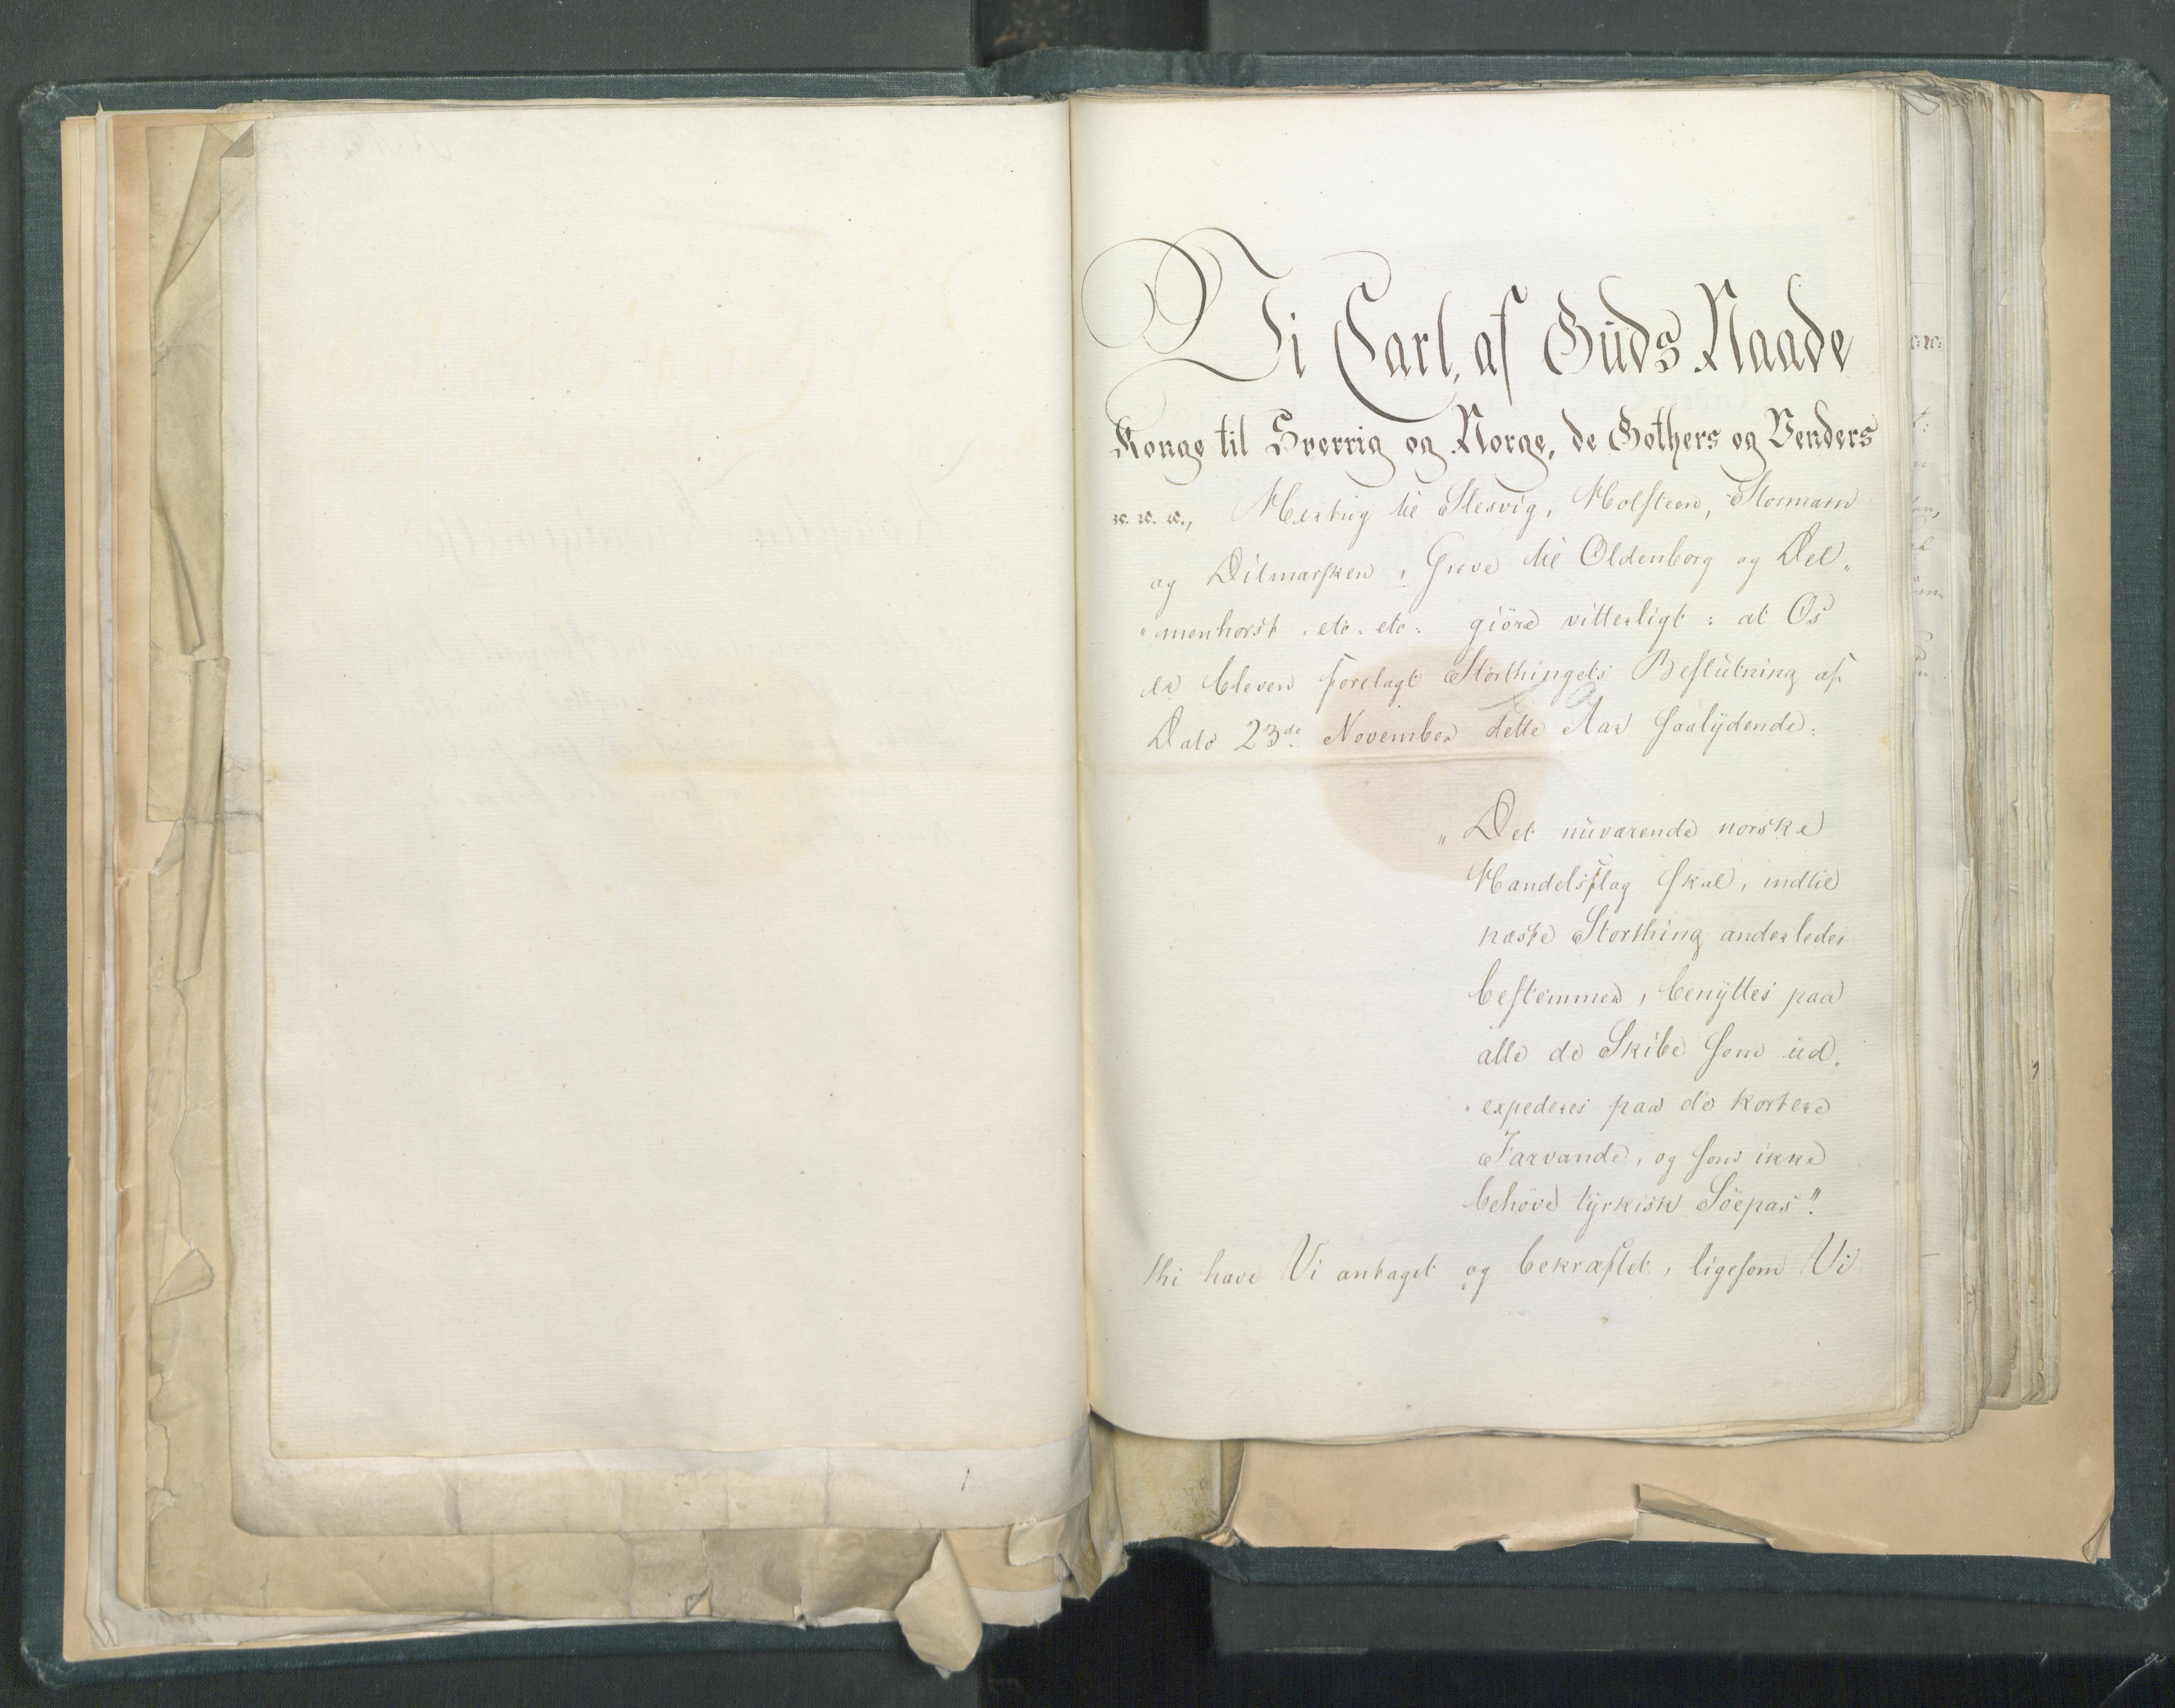 Vi Carl, af Guds Naade
Konge til Sverrig og Norge, de Gothers og Venders
ꝛc. ꝛc. ꝛc., Hertug til Slesvig, Holsteen, Stormarn
og Ditmarsken, Greve til Oldenborg og Del„
„menhorst, etc. etc: giöre vitterligt: at Os
er bleven forelagt Storthingets Beslutning af
Dato 23de November dette Aar saalydende:
„Det nuværende norske
Handelsflag skal, indtil
næste Storthing anderledes
bestemmer, benyttes paa
alle de Skibe som ud„
„expederes paa de kortere
Farvande, og som ikke
behöve tyrkisk Söepas".
thi have Vi antaget og bekræftet, ligesom Vi